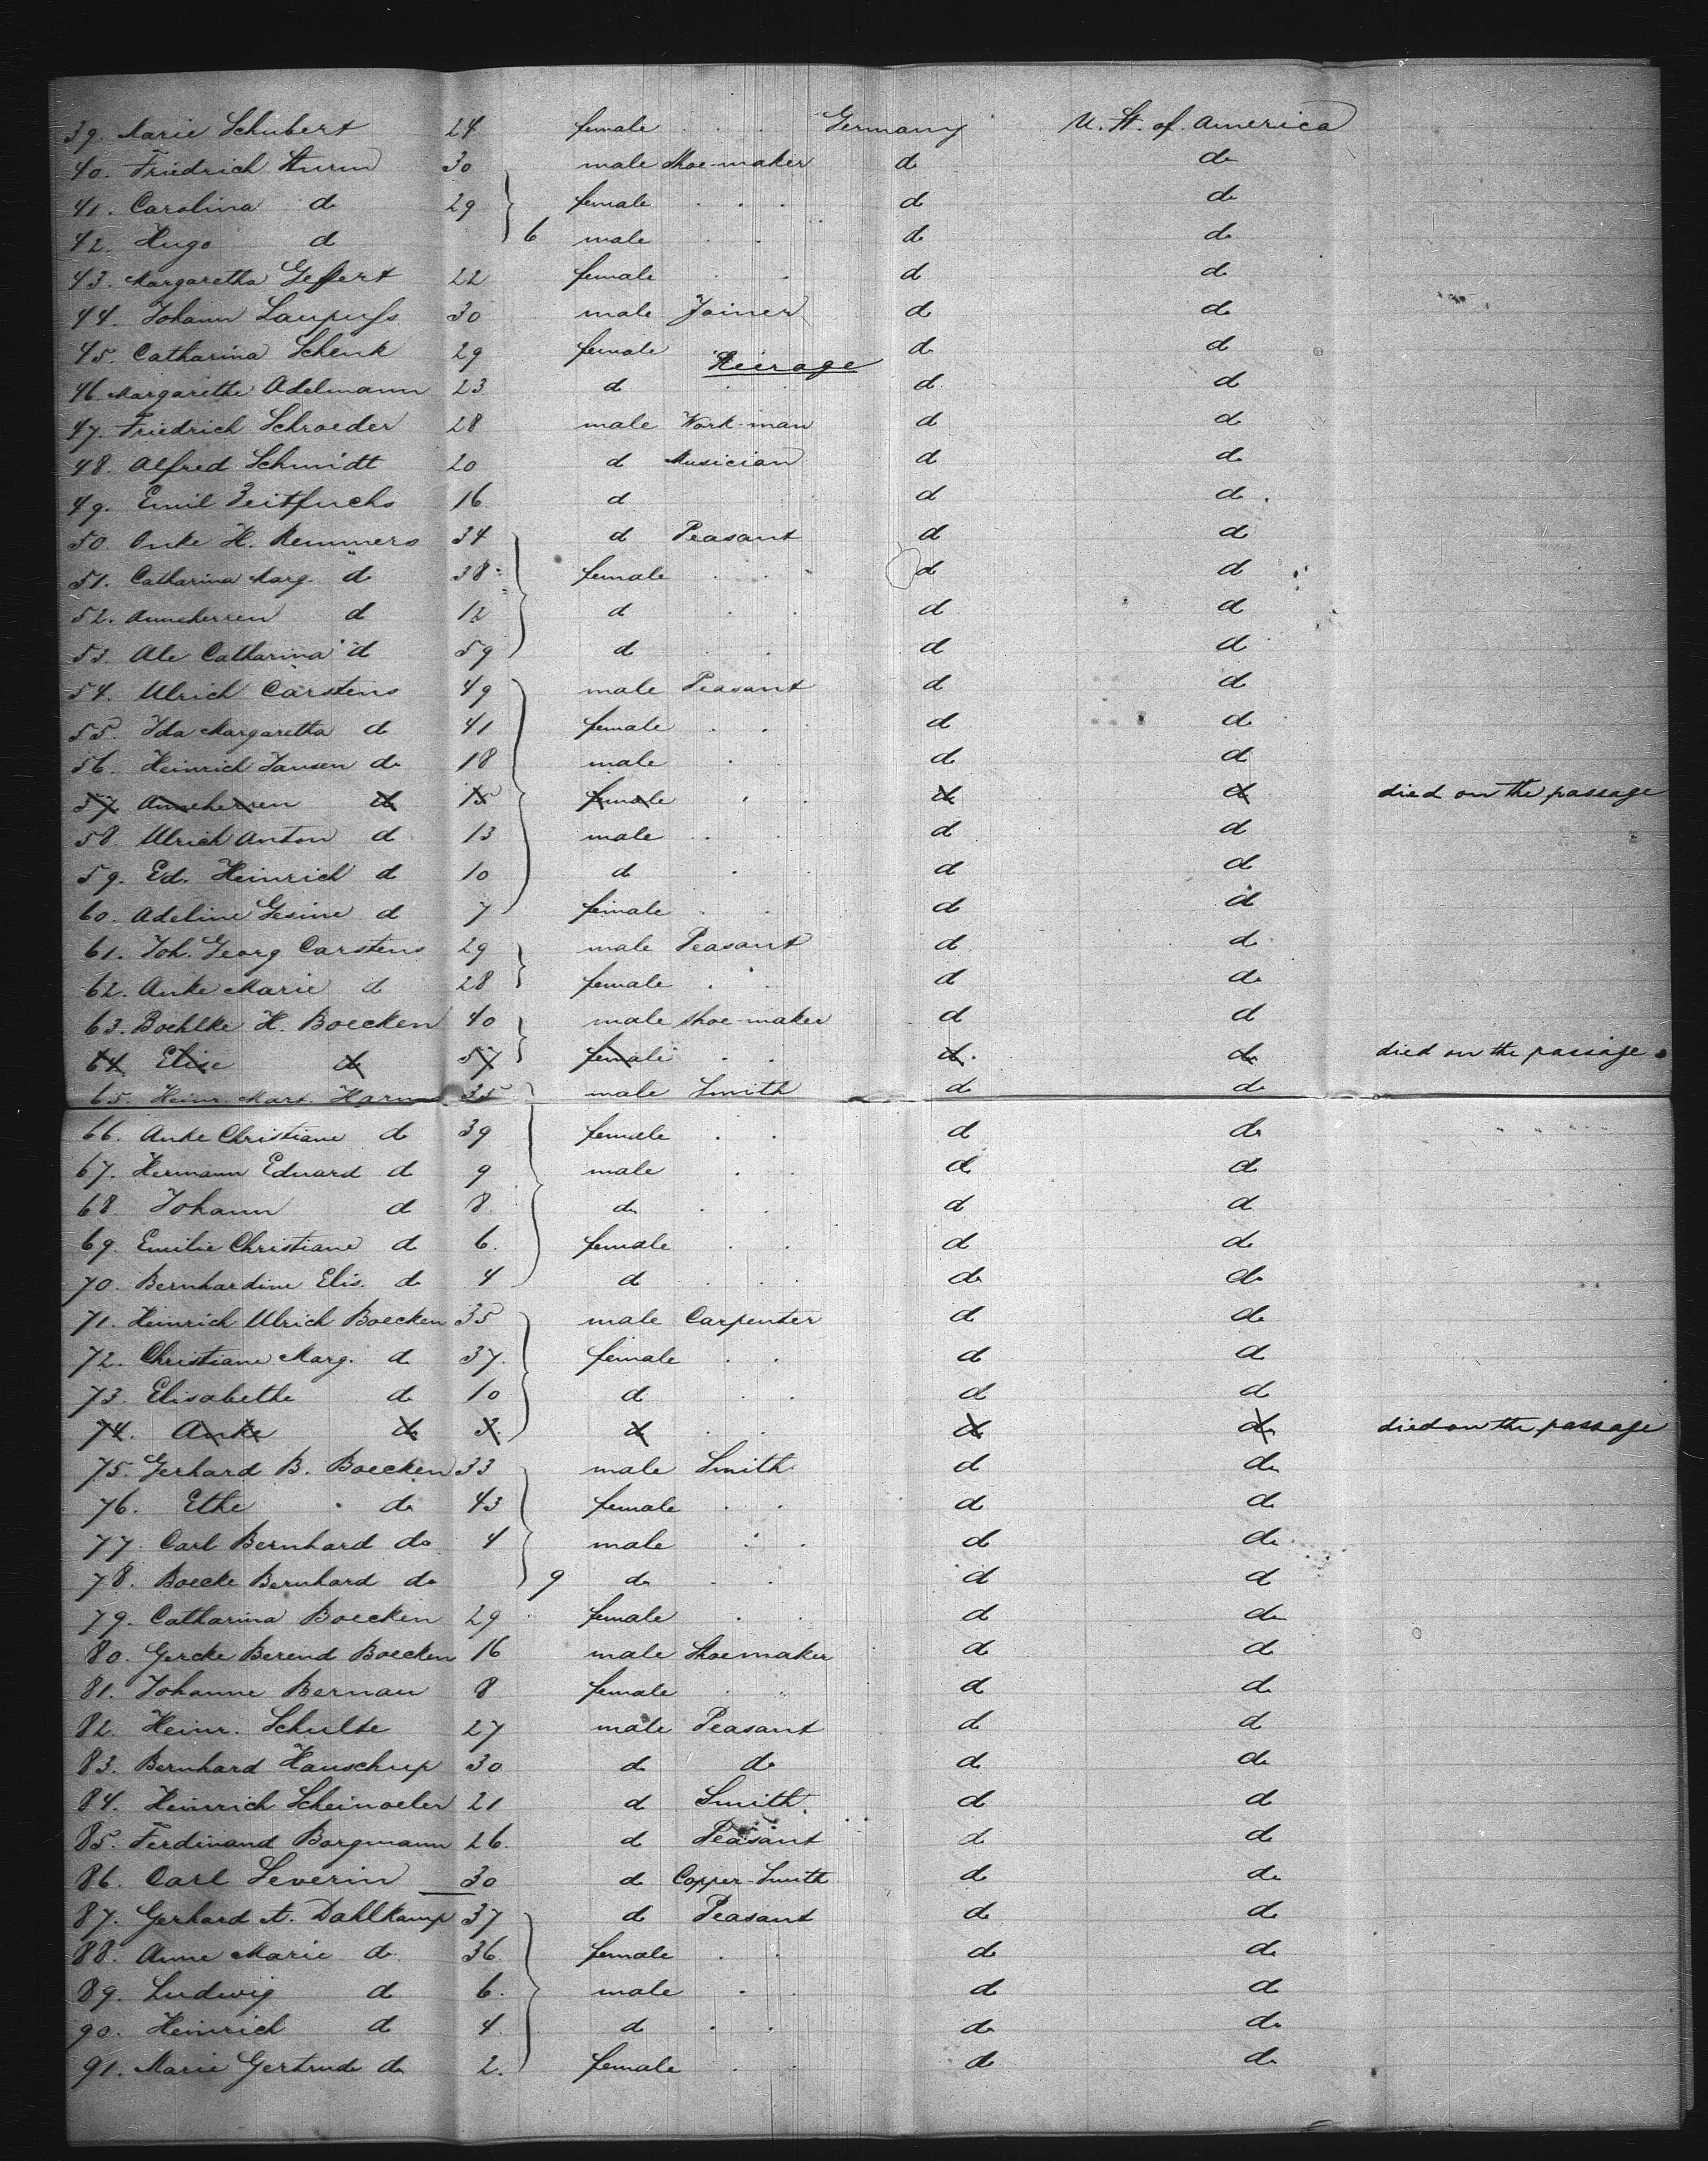 39. Marie Schubert 24 female Germany U. St. of America
40. Friedrich Sturm 30 male Shoe-maker d d
41. Carolina d 29 female d d
42. Hugo d 6 male d d
43. Margaretha Geffert 22 female d d
44. Johann 30 male Joiner d d
45. Catharina Schenk 29 female d d
46. Margarethe Adelmann 23 d d d
47. Friedrich Schroeder 28 male Work-man d d
48. Alfred Schmidt 20 d Musician d d
49. Emil Zeitfuchs 16 d d d
50. Anke H. Remmers 34 d Peasant d d
51. Catharina Marg. d 38 female d d
52. Anneherren d 12 d d d
53. Ale Catharina d 59 d d d
54. Ulrich Carstens 49 male Peasant d d
55. Ida Margaretha d 41 female d d
56. Heinrich Jansen d 18 male d d
57. Anneherren d 15 female d d died on the passage
58. Ulrich Anton d 13 male d d
59. Ed. Heinrich d 10 d d d
60. Adeline Gesine d 7 female d d
61. Joh. Georg Carstens 29 male Peasant d d
62. Anke Marie d 28 female d d
63. Boehlke H. Boecken 40 male Shoe-maker d d
64. Elise d 57 female d d died on the passage
65. Heinr. Mart. Harm 35 male Smith d d
66. Anke Christiane d 39 female d d
67. Hermann Eduard d 9 male d d
68. Johann d 8. d d d
69. Emilie Christiane d 6. female d d
70. Bernhardine Elis. d 4 d d d
71. Heinrich Ulrich Boecken 35 male Carpenter d d
72. Christiane Marg. d 37. female d d
73. Elisabethe d 10 d d d
74. Anke d 3. d d d died on the passage
75. Gerhard B. Boecken 33 male Smith d d
76. Ethe d 43 female d d
77. Carl Bernhard do 4 male d d
78. Boecke Bernhard do 9 d d d
79. Catharina Boecken 29 female d d
80. Gercke Berend Boecken 16 male Shoemaker d d
81. Johanne Bernau 8 female d d
82. Heinr. Schulte 27 male Peasant d d
83. Bernhard Hauschup 30 d d d d
84. Heinrich 21 d Smith d d
85. Ferdinand Borgmann 26. d Peasant d d
86. Carl Severin 30 d Copper-Smith d d
87. Gerhard A. Dahlkamp 37 d Peasant d d
88. Anne Marie d 36 female d d
89. Ludwig d 6. male d d
90. Heinrich d 4. d d d
91. Marie Gertrude d 2. female d d